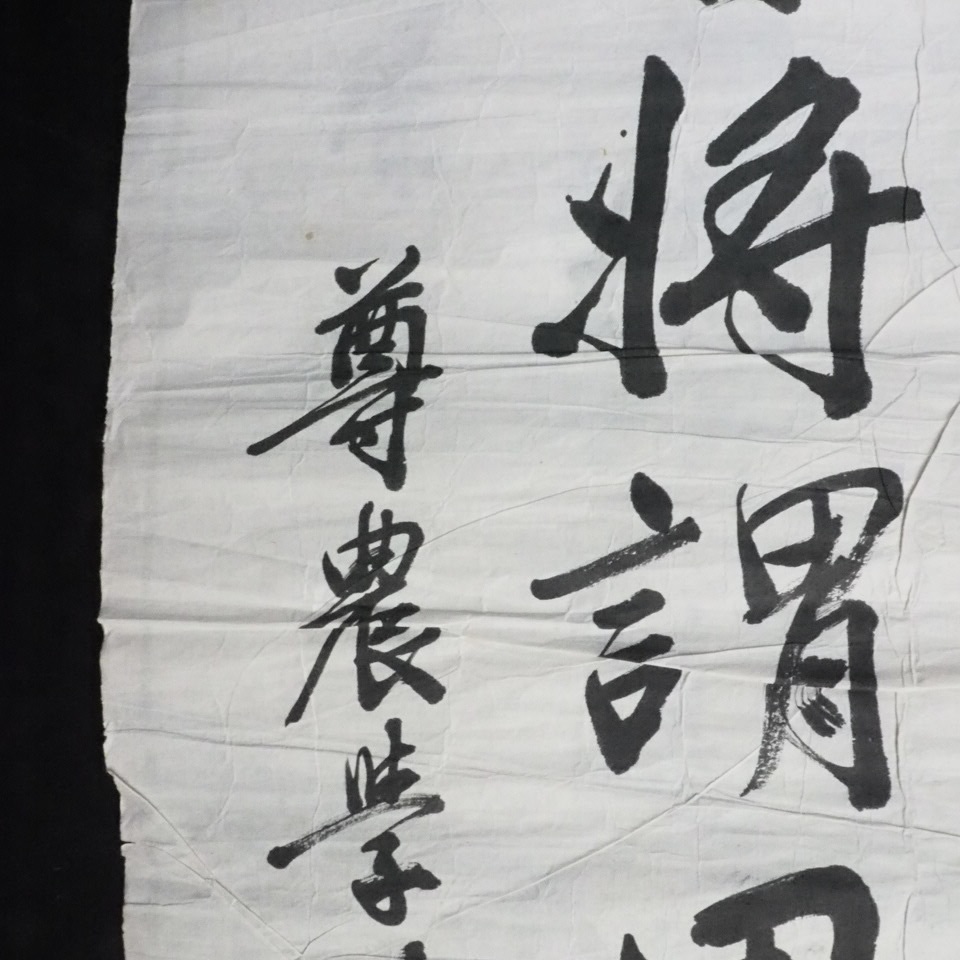 將謂
尊農學